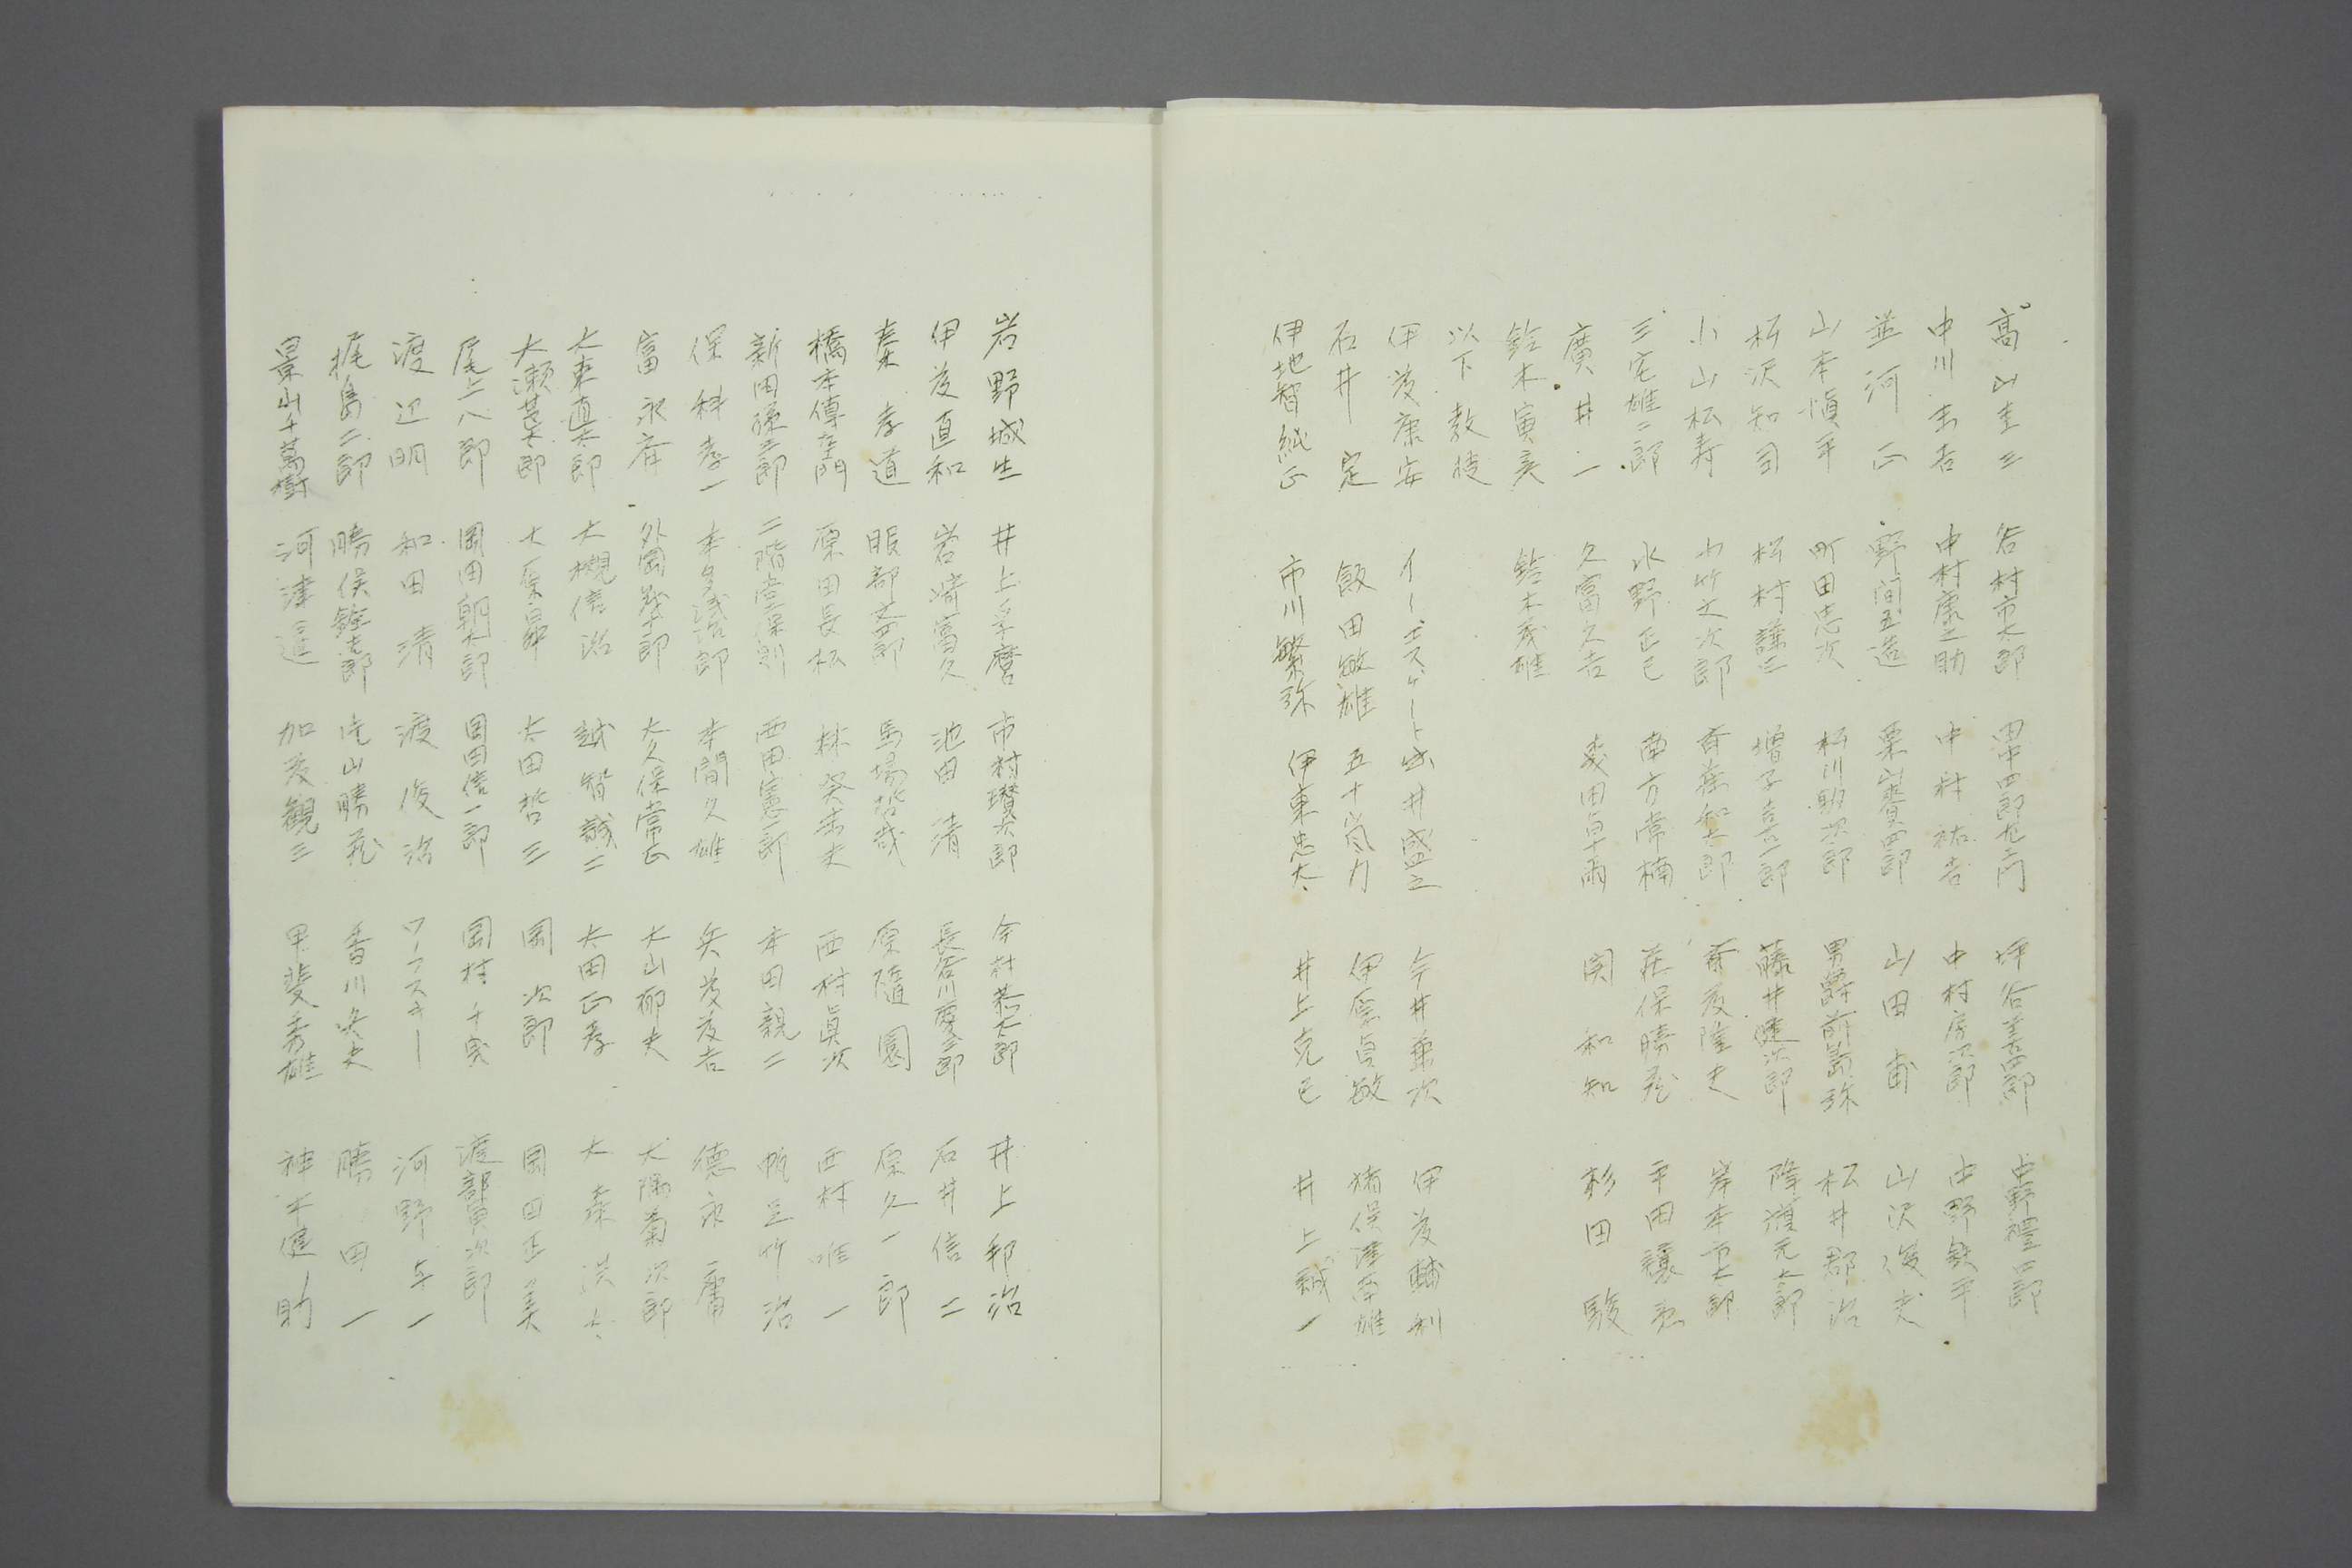 高山圭三 谷村市太郎 田中四郎左衛門 坪谷善四郎 中野禮四郎
中川吉 中村康之助 中村祐吉 中村房次郎 中野鉄平
並河正 野間五造 栗山賚四郎 山田甫 山沢俊夫
山本慎平 町田忠次 松川駒次郎 男爵前島弥 松井郡治
松沢知司 松村謙三 増子喜一郎 藤井健次郎 降瀬元太郎
小山松寿 小竹文次郎 斉藤和太郎 斎藤隆夫 岸本市太郎
三宅雄二郎 水野正巳 南方常楠 荘保勝蔵 平田譲衛
廣井一 久富久吉 森田卓爾 関和知 杉田駿
鈴木寅彦 鈴木茂雄
以下教徒
伊藤康安 イー、エス、ゲート 岩井盛之 今井兼次 伊藤輔利
石井定 飯田敏雄 五十嵐力 伊原貞敏 猪俣津南雄
伊地智純正 市川繁弥 伊東忠太 井上克己 井上誠一
岩野城生 井上孚麿 市村瓚太郎 今村恭太郎 井上郁治
伊藤直和 岩崎富久 池田清 長谷川慶三郎 石井信二
秦孝道 服部文四郎 馬場哲哉 原隨園 原久一郎
橋本傳左衛門 原田長松 林癸未夫 西村眞次 西村唯一
新田孫三郎 二階堂保則 西田憲一郎 本田親二 帆足竹治
保科孝一 本多浅治郎 本間久雄 兵藤藤吉 徳永庸
富永斉 外岡茂十郎 大久保常正 大山郁夫 大隅菊次郎
大東直太郎 大槻信治 越智誠二 太田正孝 大森洪太
大瀬甚太郎 大原昇 太田哲三 岡次郎 岡田正美
尾上八郎 岡田朝太郎 岡田信一郎 岡村千曳 渡部寅次郎
渡辺明 和田清 渡俊治 ワーフスキー 河野与一
梶島二郎 勝俣銓吉郎 影山勝蔵 香川冬夫 勝田一
景山千萬樹 河津暹 加藤観三 甲斐秀雄 神木健助